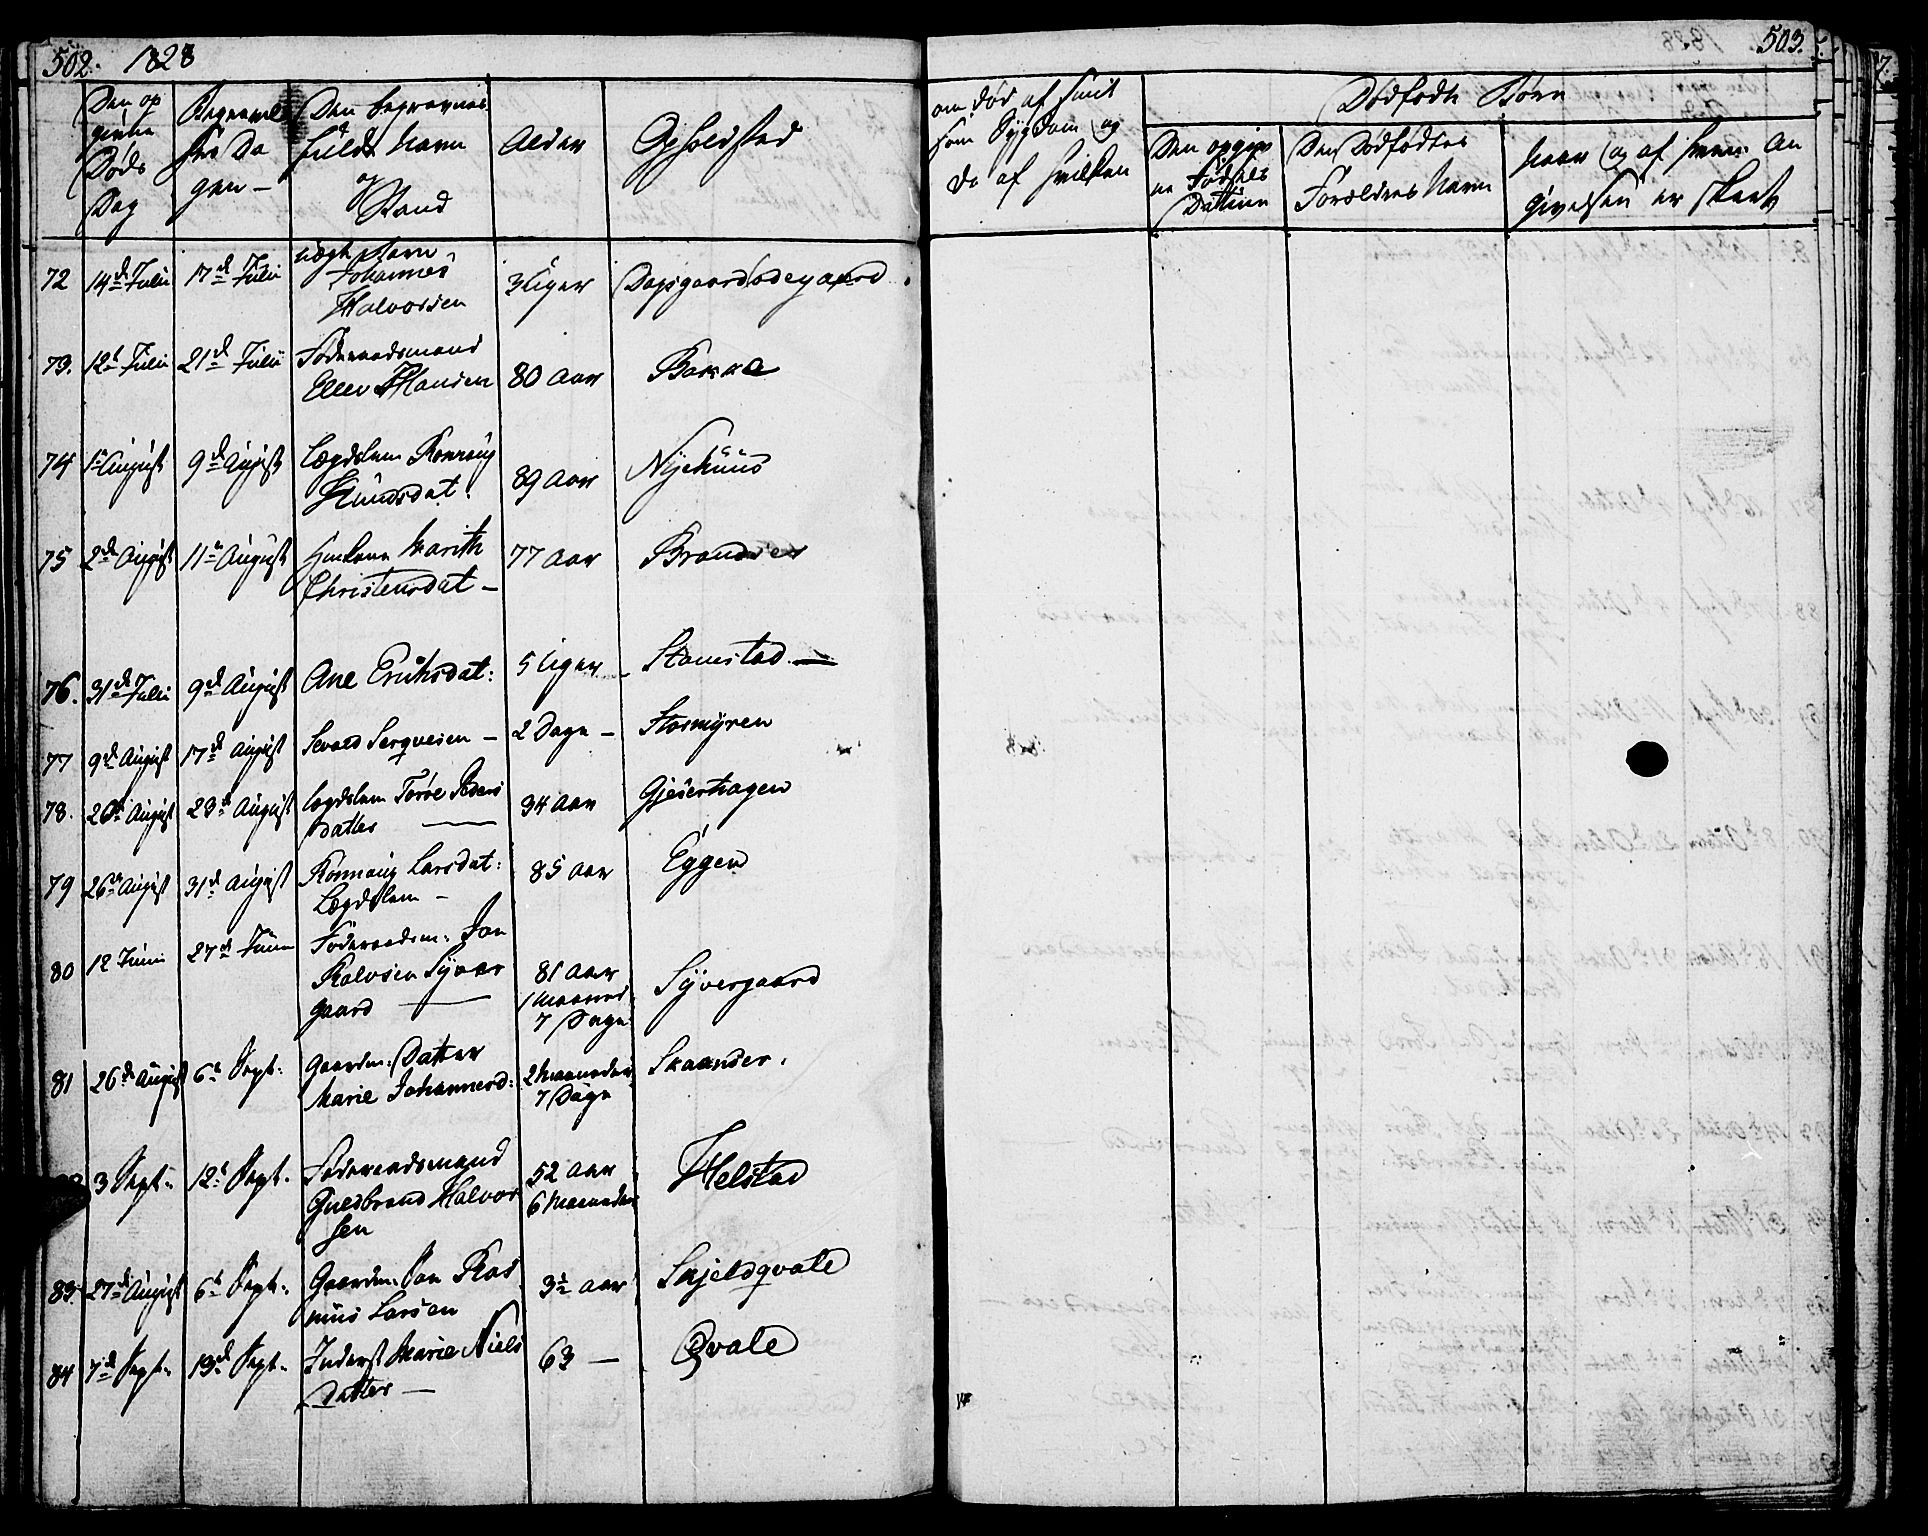 502. 1828
Den op
givne
Døds
Dag
Begravel
ses Da
gen —
Den begravnes
fulde Navn
og
Stand
Alder
Opholdsted
72 14d Julii 17d Julii
Johannes
Halvorsen
3 Uger
Dapsgaardødegaard
73. 12t Julii 21d Julii
Føderaadsmand
Ellev Hansen
80 Aar
Bakke
74 1t August 9d August
Lægdslem Rønnoug
Knudsdat.
89 Aar
Nyehuus
75 2d August 11t August
Marith
Christensdat —
77 Aar
76. 31d Julii 9d August
Ane Eriksdat:
5 Uger
Stamstad —
77 9d August 17d August
2 Dage —
Stormyren
78. 20d August 23d August
Lægdslem Peders
Datter —
34 Aar
Gjeiterhagen
79 26d August 31d August
Rønnoug Larsdat:
Lægdslem —
85 Aar
Eggen
80 12 Junii 27d Junii
Føderaadsm: Jon
Syver
gaard —
81 Aar
1 Maaned
7 Dage
Syvergaard
81 26d August 6t Sept:
Gaardm: Datter
Marie Johannesd:
2 Maaneder
7 Dage
Skaander.
3 Sept: 12t Sept.
Føderaadsmand
Guldbrand Halvor
sen
52 Aar
6 Maaneder
Helstad
83. 27d August 6t Sept:
Gaardm: Søn Ras
mus Larsen
3½ Aar
Skjeldqvale
84 7d Sept. 13d Sept.
Inderst Marie Niels
Datter —
63 —
Qvale
503.
om død af smit
som Sygdom og
da af hvilken
Dødfødte Børn
Den opgiv
ne Fødsels
Den Dødfødtes
Forældres Navn
naar og af hvem An
givelsen er skeet